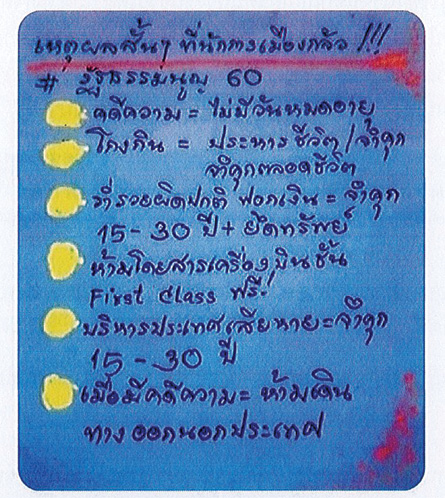 เหตุผลสั้นๆ ที่นักการเมืองกลัว !!!
# รัฐธรรมนูญ 60
คดีความ = ไม่มีวันหมดอายุ
โกงกิน = ประหารชีวิต/จำคุก
จำคุกตลอดชีวิต
ร่ำรวยผิดปกติ ฟอกเงิน = จำคุก
15 - 30 ปี + ยึดทรัพย์
ห้ามโดยสารเครื่องบินชั้น
First class ฟรี!
บริหารประเทศเสียหาย = จำคุก
15 - 30 ปี
เมื่อมีคดีความ = ห้ามเดิน
ทางออกนอกประเทศ